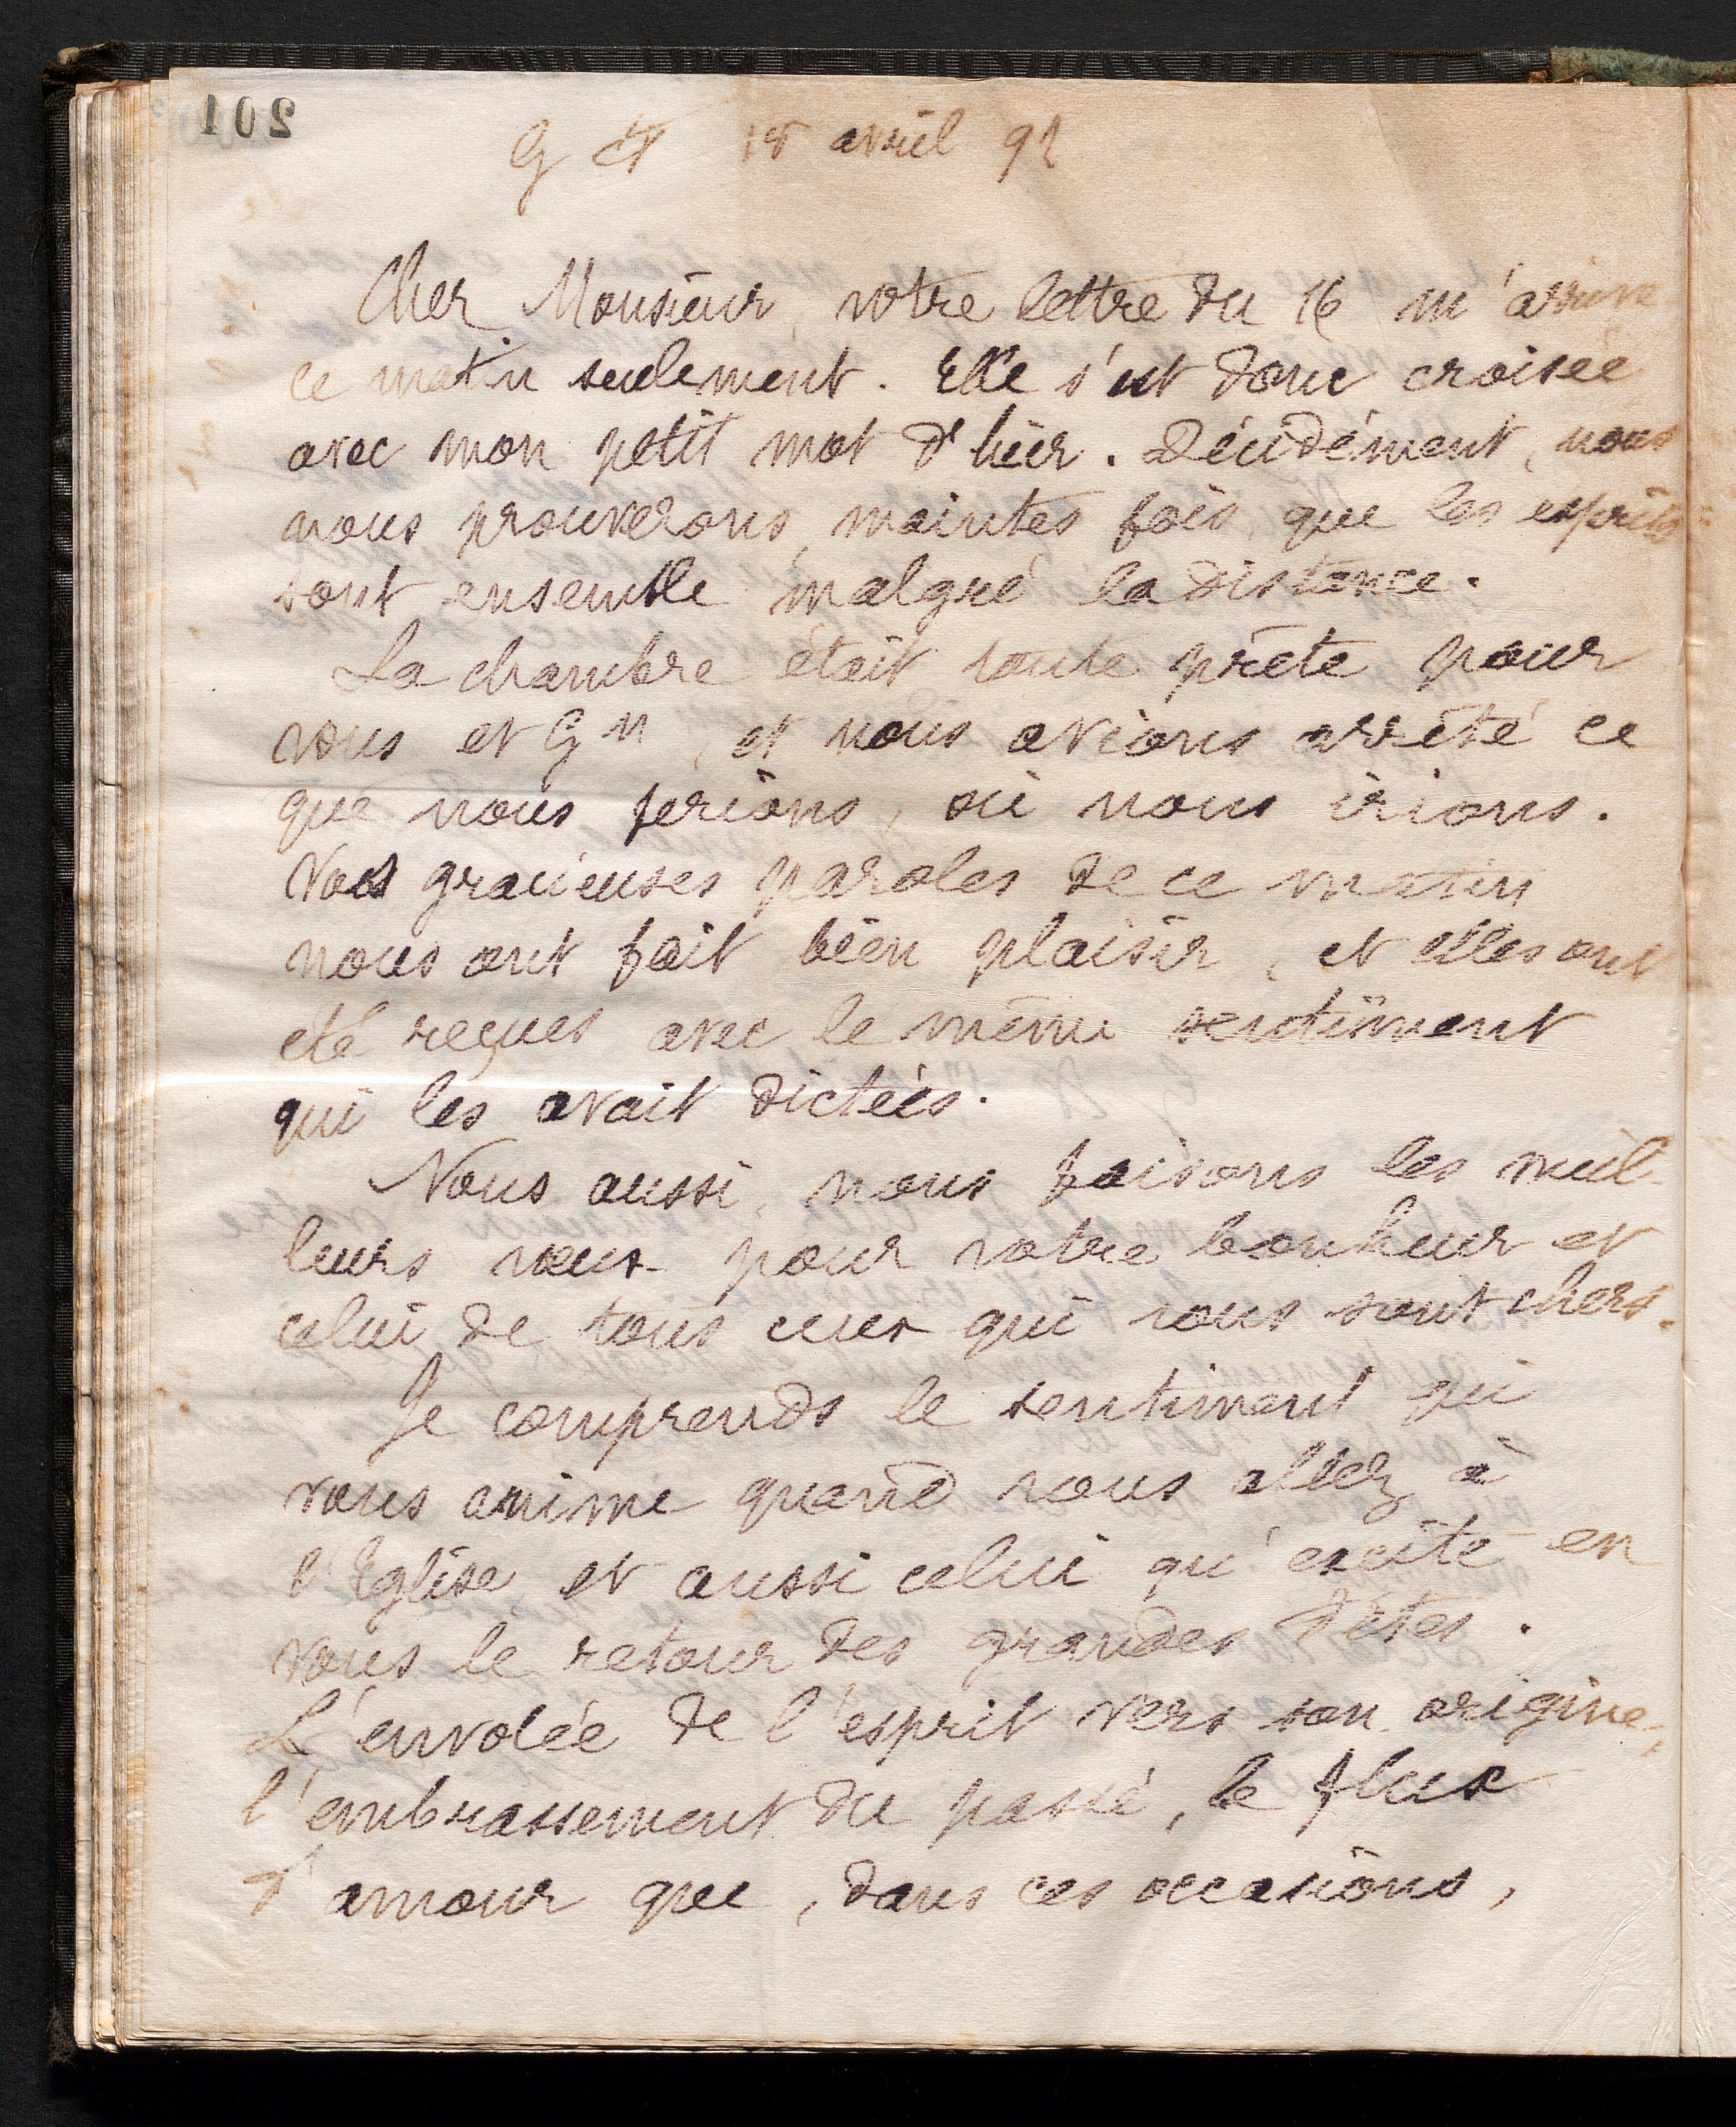 201
G et 18 avril 92
Cher Monsieur, votre lettre du 16 m'arrive
ce matin seulement. Elle s'est donc croisée
avec mon petit mot d'hier. Décidément, nous
nous prouverons, maintes fois, que les esprits
sont ensemble malgré la distance.
La chambre était toute prête pour
vous et Gn, et nous avions arrêté ce
que nous ferions, où nous irions.
Vos gracieuses paroles de ce matin
nous ont fait bien plaisir, et elles ont
été reçues avec le même sentiment
qui les avait dictées.
Nous aussi, nous faisons les meil-
leurs vœux pour votre bonheur et
celui de tous ceux qui vous sont chers.
Je comprends le sentiment qui
vous anime quand vous allez à
l'Eglise, et aussi celui qu'excite en
vous le retour des grandes fêtes.
L'envolée de l'esprit vers son origine,
l'embrassement du passé, le flux
d'amour que, dans ces occasions,